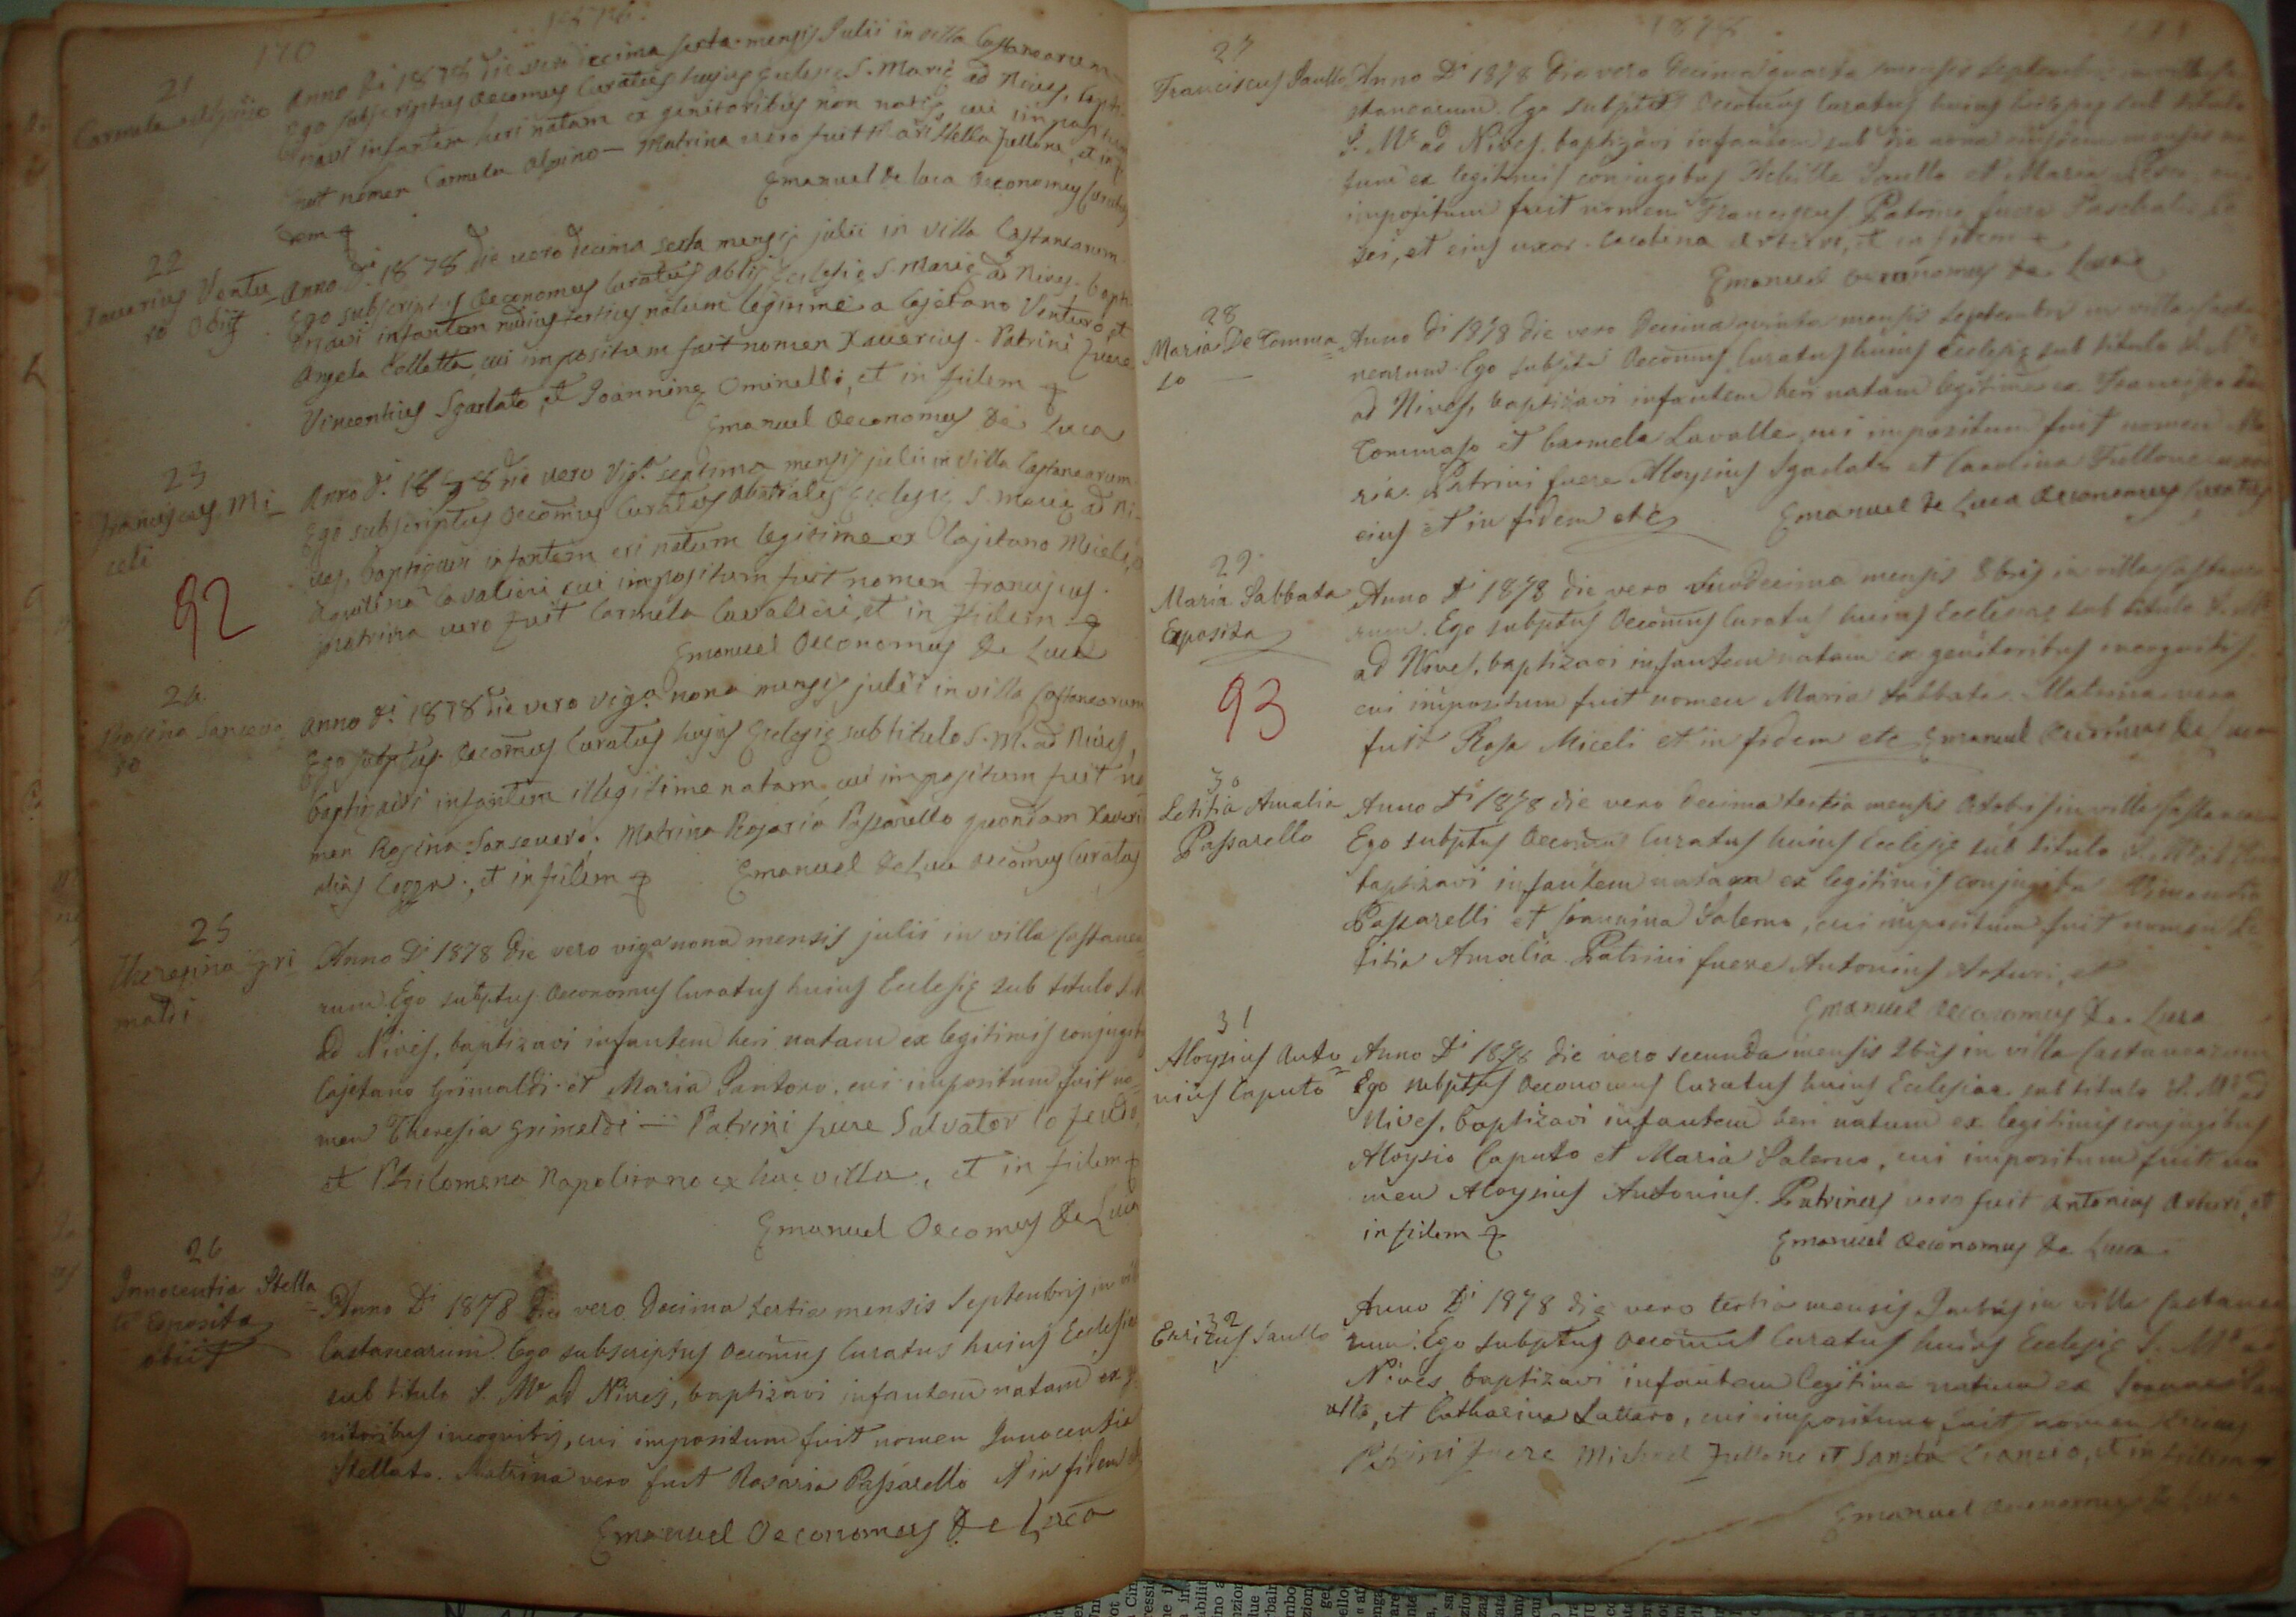 170
1878
21
Carmela Alpino
Anno Di 1878 die vero decima sexta mensis Julii in villa Castanearum
Ego subscriptus Oeconomus Curatus hujus Eclesię S. Marię ad Nives, bapti-
zavi infantem heri natam ex genitoribus non notis, cui impositum
fuit nomen Carmela Alpino — Matrina vero fuit Maristella Fullone, et in fi
dem
Emanuel de Luca Oeconomus Curatus
22
Xaverius Ventu
ro Obiit
Anno Di 1878 die vero decima sexta mensis julii in villa Castanearum
Ego subscriptus Oeconomus Curatus Ablis Eclesię S. Marię ad Nives. bapti
zavi infantem nudius tertius natum legitime a Cajetano Venturo, et
Angela Colletta, cui impositum fuit nomen Xaverius. Patrini fuere
Vincentius Sgarlato, et Joannina Ominelli, et in fidem
Emanuel Oeconomus De Luca
23
Franciscus Mi
celi
92
Anno Di 1878 die vero Viga septima mensis julii in villa Castanearum
Ego subscriptus Oecomus Curatus Abatialis Eclesię S. Marię ad Ni-
ves, baptizavi infantem eri natum legitime ex Cajetano Miceli, e
Cavalieri cui impositum fuit nomen Franciscus.
Matrina vero fuit Carmela Cavalieri, et in fidem
Emanuel Oeconomus De Luca
24
Rosina Sanseve
ro
Anno Di 1878 die vero viga nona mensis julii in villa Castanearum
Ego subptus Oecomus Curatus hujus Eclesię sub titulo S. M. ad Nives,
baptizavi infantem illegitime natam, cui impositum fuit no
men Rosina Sansevero. Matrina Rosaria Passarello quondam Xaveri
alias , et in fidem
Emanuel De Luca Oecomus Curatus
25
Theresina Gri
maldi
Anno Di 1878 die vero viga nona mensis julii in villa Castanea
rum. Ego subptus Oeconomus Curatus hujus Eclesię sub titulo S. M
ad Nives, baptizavi infantem heri natam ex legitimis conjugibus
Cajetano Grimaldi et Maria Santoro, cui impositum fuit no-
men Theresia Grimaldi — Patrini fuere Salvator lo Feudo,
et Philomena Napolitano ex hac villa, et in fidem
Emanuel Oecomus De Luca
26
Innocentia Stella
ta Esposita
obiit
Anno Di 1878 die vero decima tertia mensis Septembris in vill
Castanearum. Ego subscriptus Oecomus Curatus hujus Eclesię
sub titulo S. Me ad Nives, baptizavi infantem natam ex ge
nitoribus incognitis, cui impositum fuit nomen Innocentia
Stellata. Matrina vero fuit Rosaria Passarello et in fidem
Emanuel Oeconomus De Luca
1878
171
27
Franciscus Saullo
Anno Di 1878 die vero decima quarta mensis Septembris in villa Ca
stanearum. Ego subptus Oecomus Curatus hujus Eclesię sub titulo
S. Me ad Nives, baptizavi infantem sub die nona ejusdem mensis na
tum ex legitimis conjugibus Achille Saullo et Maria cui
impositum fuit nomen Franciscus. Patrini fuere Paschalis
et ejus uxor Carolina Arturi, et in fidem
Emanuel Oeconomus De Luca
28
Maria De Tomma
so
Anno Di 1878 die vero decima quinta mensis Septembris in villa Casta
nearum. Ego subptus Oecomus Curatus hujus Eclesię sub titulo S. Me
ad Nives, baptizavi infantem heri natam legitime ex Francisco De
Tommaso et Carmela Lavalle, cui impositum fuit nomen Ma
ria. Patrini fuere Aloysius Sgarlato et Carolina Fullone uxor
ejus et in fidem etc
Emanuel De Luca Oeconomus Curatus
29
Maria Sabbata
Esposita
93
Anno Di 1878 die vero duodecima mensis 8bris in villa Castanea
rum. Ego subptus Oecomus Curatus hujus Eclesiae sub titulo S. Me
ad Nives, baptizavi infantem natam ex genitoribus incognitis,
cui impositum fuit nomen Maria Sabbata. Matrina vero
fuit Rosa Miceli et in fidem etc Emanuel Oecomus De Luca
30
Letitia Amalia
Passarello
Anno Di 1878 die vero decima tertia mensis Octobris in villa Castanea
Ego subptus Oecomus Curatus hujus Eclesię sub titulo S. M
baptizavi infantem natam ex legitimis conjugibus
Passarelli et Joannina Salerno, cui impositum fuit nomen Le
titia Amalia. Patrini fuere Antonius Arturi, et
Emanuel Oeconomus De Luca
31
Aloysius Anto
nius Caputo
Anno Di 1878 die vero secunda mensis 9bris in villa Castanearum
Ego subptus Oeconomus Curatus hujus Eclesiae sub titulo S. Me ad
Nives, baptizavi infantem heri natum ex legitimis conjugibus
Aloysio Caputo et Maria Salerno, cui impositum fuit no
men Aloysius Antonius. Patrinus vero fuit Antonius Arturi, et
in fidem
Emanuel Oeconomus De Luca
32
Enricus Saullo
Anno Di 1878 die vero tertia mensis in villa Castanea
rum. Ego subptus Oecomus Curatus hujus Eclesię S. Me ad
Nives baptizavi infantem legitime natum ex Sau
llo, et Catharina Lattaro, cui impositum fuit nomen Enricus
Patrini fuere Michael Fullone et Santa , et in fidem
Emanuel Oeconomus De Luca